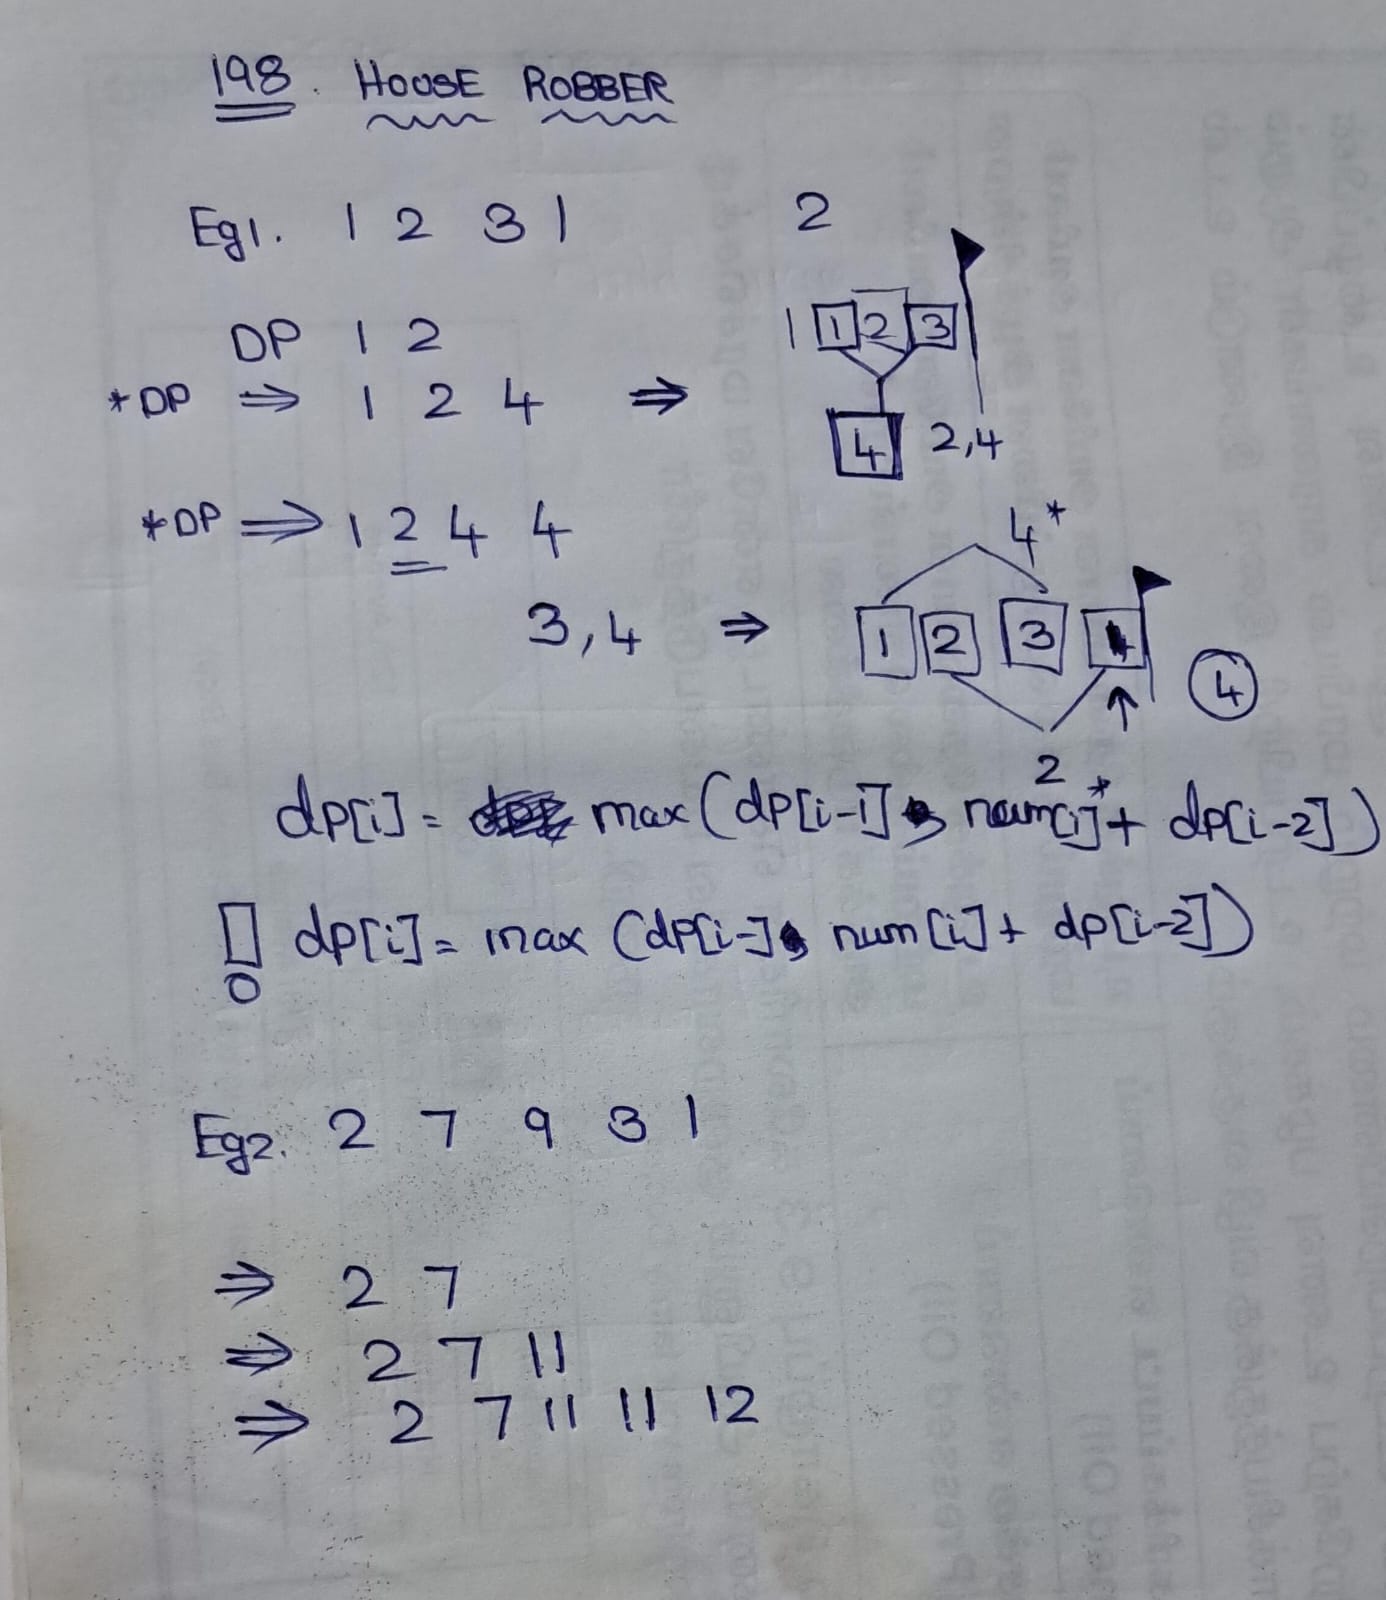 198. HOUSE ROBBER
Eg1. 1 2 3 1
2
DP 1 2
1 1 2 3
*DP ⇒ 1 2 4 ⇒
4 2,4
*DP ⇒ 1 2 4 4
4*
3,4 ⇒ 1 2 3
4
2
dp[i] = max(dp[i-1], num[i]* + dp[i-2])
dp[i] = max (dp[i-], num[i] + dp[i-2])
Eg2. 2 7 9 3 1
⇒ 2 7
⇒ 2 7 11
⇒ 2 7 11 11 12